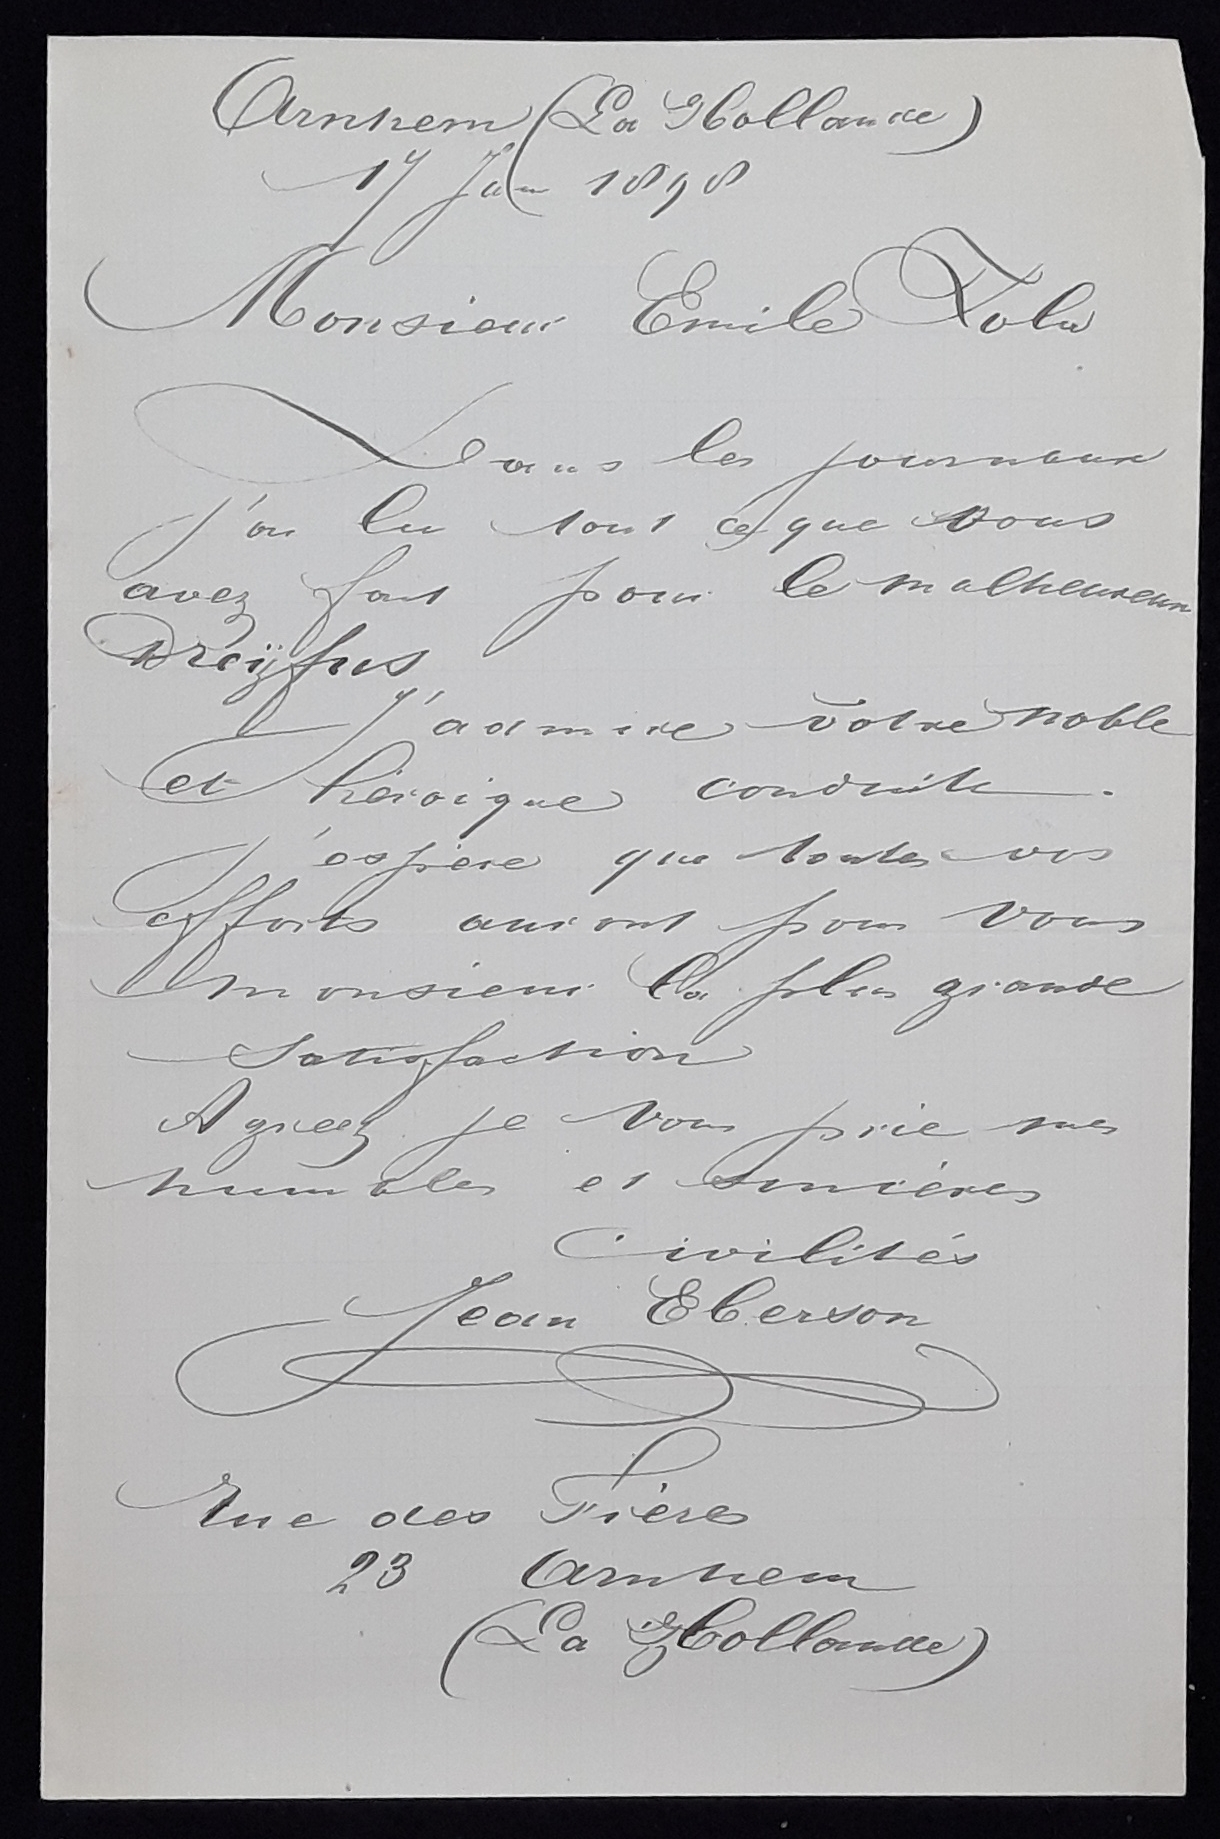 Arnhem (La Hollande)
17 Jan 1898
Monsieur Emile Zola
Dans les journaux
j'ai lu tout ce que vous
avez fait pour le malheureux
Dreÿfus
J'admire votre noble
et héroique conduite.
J'espère que toutes vos
efforts auront pour vous
monsieur la plus grande
satisfaction
Agreez je vous prie mes
humbles et sincères
civilités
Jean Eberson
Rue des Frères
23 Arnhem
(La Hollande)